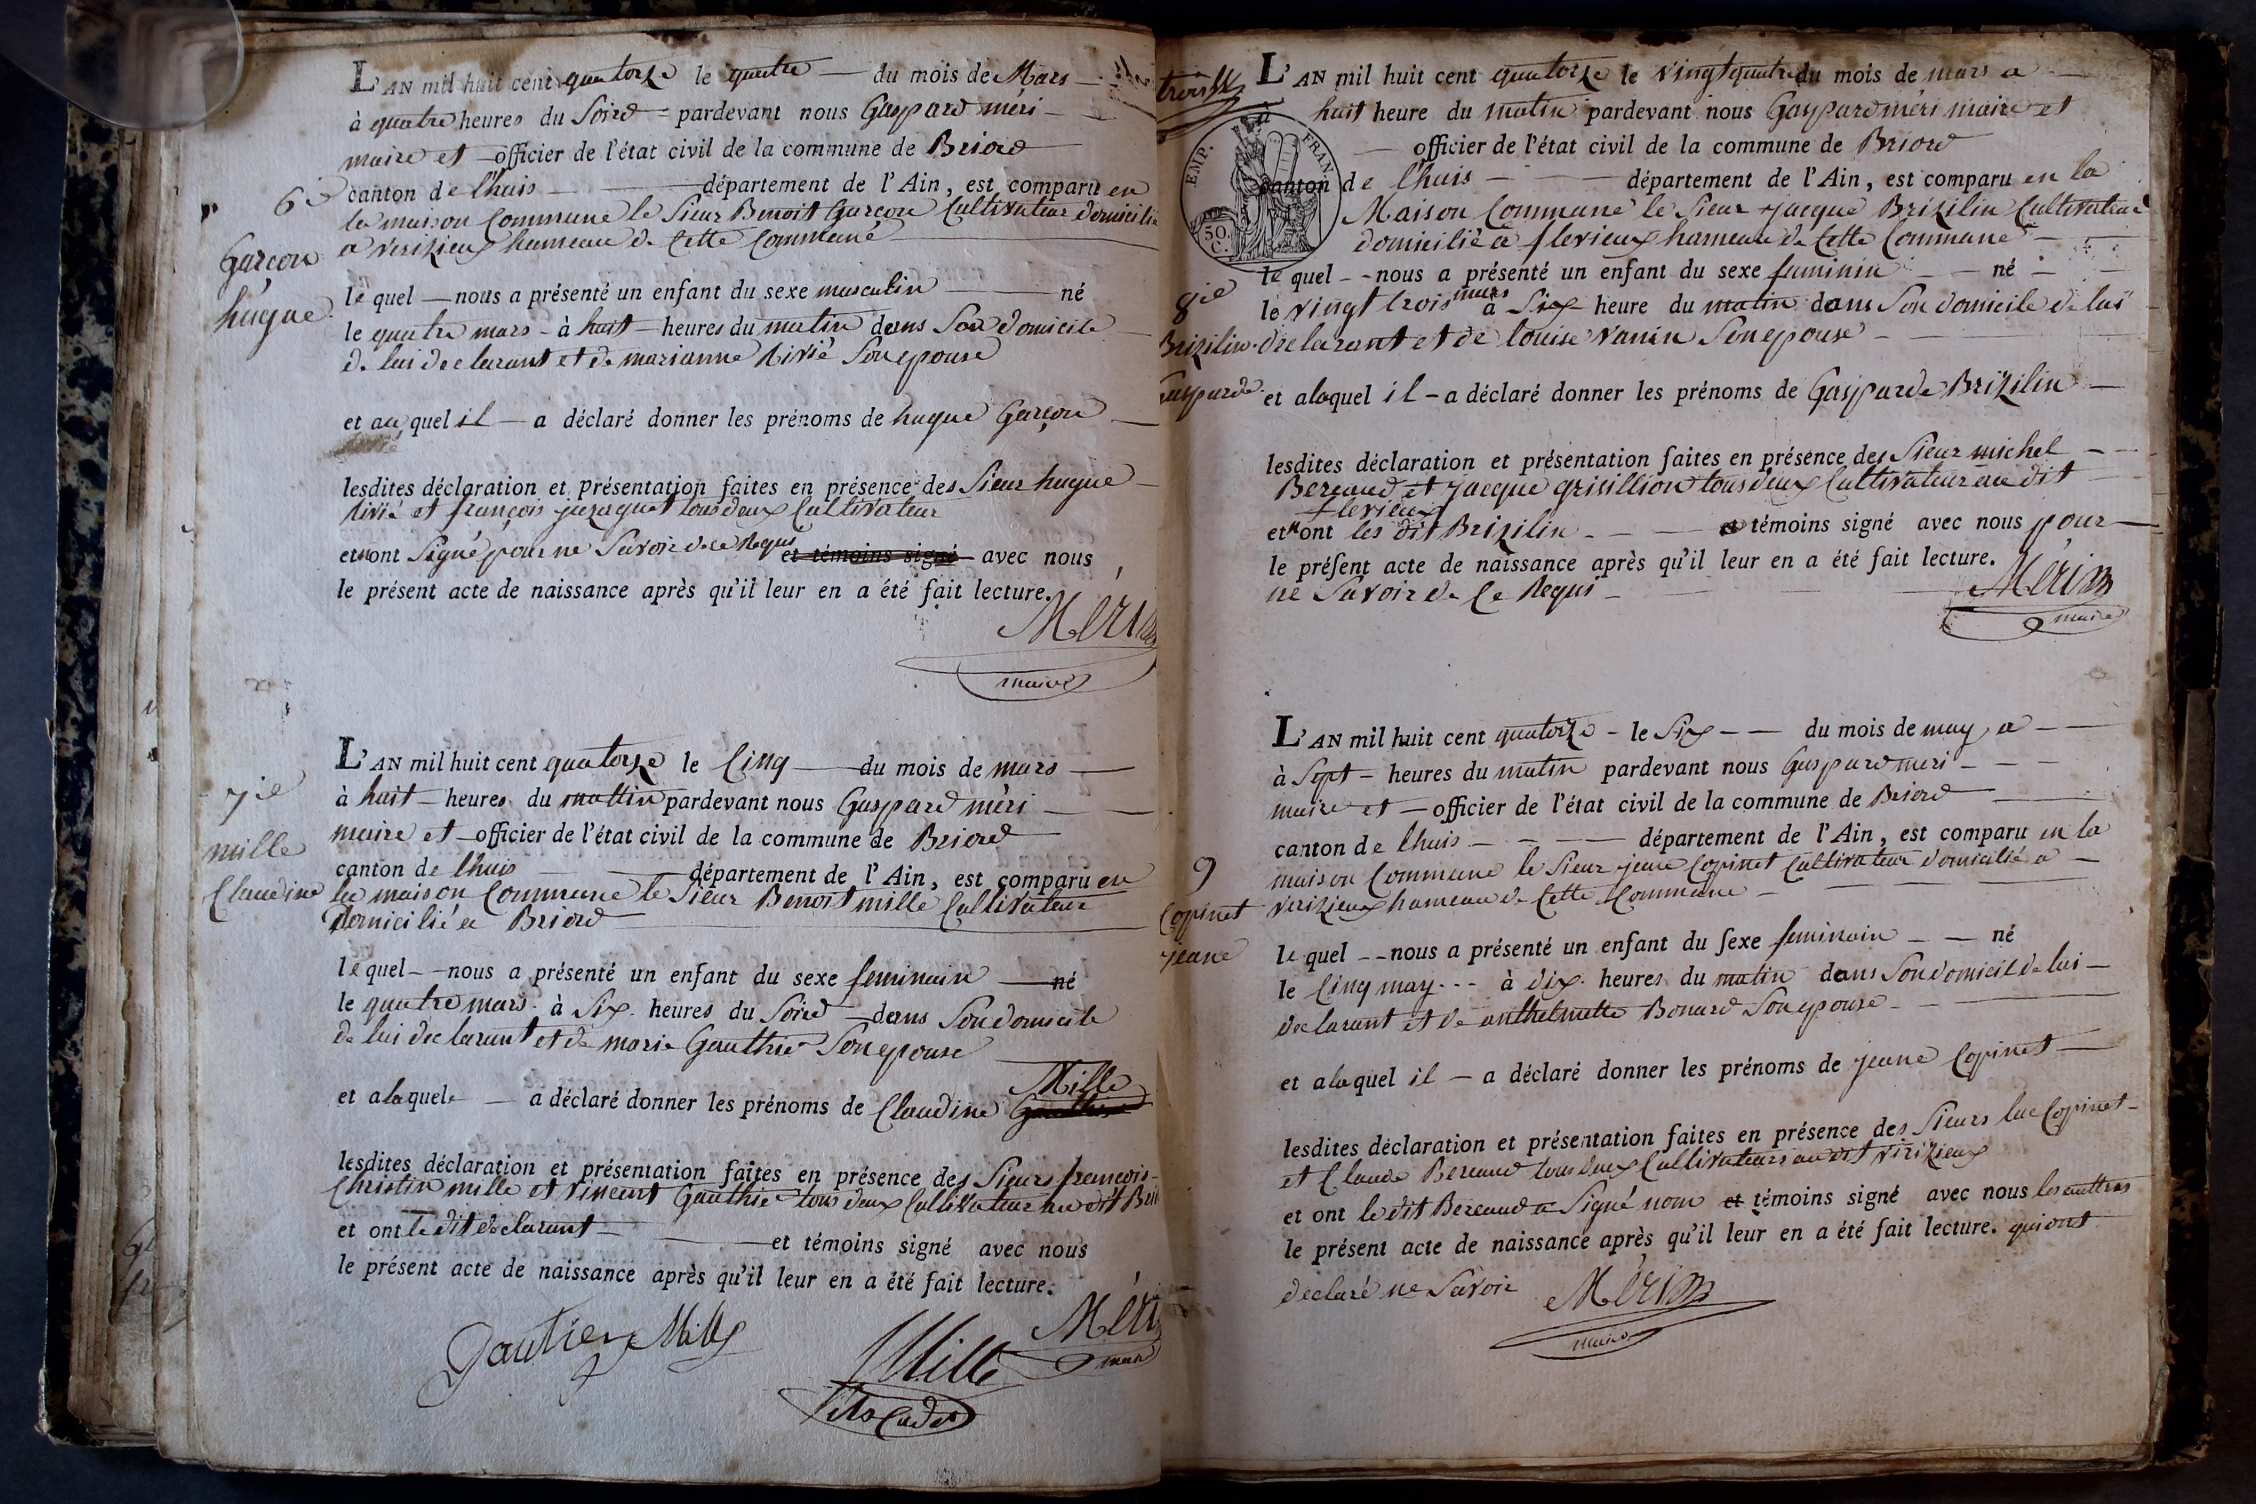 L'AN mil huit cent quatorze le quatre du mois de Mars
à quatre heures du Soire pardevant nous Gaspard méri
maire et officier de l'état civil de la commune de Briord
6ie
canton de l'huis département de l'Ain, est comparu en
la maison Commune le Sieur Benoit Garçon Cultivateur domicilié
a verizieux hameau de Cette Commune
Garçon
hugue
le quel nous a présenté un enfant du sexe masculin né
le quatre mars à huit heures du matin dans Son domicile
de lui declarant et de marianne Rivié Son epouse
et au quel il a déclaré donner les prénoms de hugue Garçon
lesdites déclaration et présentation faites en présence des Sieur hugue
Rivié et françois juzaquet tous deux Cultivateur
et n'ont Signé pour ne Savoir de ce Requi et témoins signé avec nous
le présent acte de naissance après qu'il leur en a été fait lecture.
Méri
maire
L'AN mil huit cent quatorze le Cinq du mois de mars
7ie
à huit heures du mattin pardevant nous Gaspard méri
maire et officier de l'état civil de la commune de Briord
mille
Claudine
canton de l'huis département de l'Ain, est comparu en
la maison Commune le Sieur Benoit mille Cultivateur
domicilié a Briord
le quel nous a présenté un enfant du sexe feminain né
le quatre mars à Six heures du Soire dans Son domicile
de lui declarant et de marie Gauthie Son epouse
Mille
et a la quele a déclaré donner les prénoms de Claudine
lesdites déclaration et présentation faites en présence des Sieurs francois
Christin mille et vincent Gauthie tous deux Cultivateur au dit
et ont le dit declarant et témoins signé avec nous
le présent acte de naissance après qu'il leur en a été fait lecture.
Gautier Mille
Mille
fils Cadet
Méri
maire
L'AN mil huit cent quatorze le vingt quatre du mois de mars a
à huit heure du matin pardevant nous Gaspard méri maire et
EMP. FRAN.
50. C.
officier de l'état civil de la commune de Briord
canton de l'huis département de l'Ain, est comparu en la
Maison Commune le Sieur jacque Brizilin Cultivateur
domicilié a flevieux hameau de Cette Commune
le quel nous a présenté un enfant du sexe feminin né
8ie
le vingt trois mars à Six heure du matin dans Son domicile de lui
Brizilin
declarant et de louise vanin Son epouse
Gasparde
et a la quel il a déclaré donner les prénoms de Gasparde Brizilin
lesdites déclaration et présentation faites en présence des Sieur michel
Bereaud et jacque grisillion tous deux Cultivateur au dit
flevieux
et n'ont les dit Brizilin et témoins signé avec nous pour
le présent acte de naissance après qu'il leur en a été fait lecture.
ne Savoir de Ce Requi
Méri
maire
L'AN mil huit cent quatorze le Six du mois de may a
à Sept heures du matin pardevant nous Gaspard meri
maire et officier de l'état civil de la commune de Briord
canton de l'huis département de l'Ain, est comparu en la
9
maison Commune le Sieur jean Copinet Cultivateur domicilié a
verizieux hameau de Cette Commune
Copinet
jeane
le quel nous a présenté un enfant du sexe feminain né
le Cinq may à dix heures du matin dans Son domicil de lui
declarant et de anthelmette Bonard Son epouse
et a la quel il a déclaré donner les prénoms de jeane Copinet
lesdites déclaration et présentation faites en présence des Sieurs luc Copinet
et Claude Bereaud tous deux Cultivateurs au dit virizieux
et ont le dit Bereaud a Signé nom et témoins signé avec nous les auttres
le présent acte de naissance après qu'il leur en a été fait lecture. qui ont
declaré ne Savoir
Méri
maire